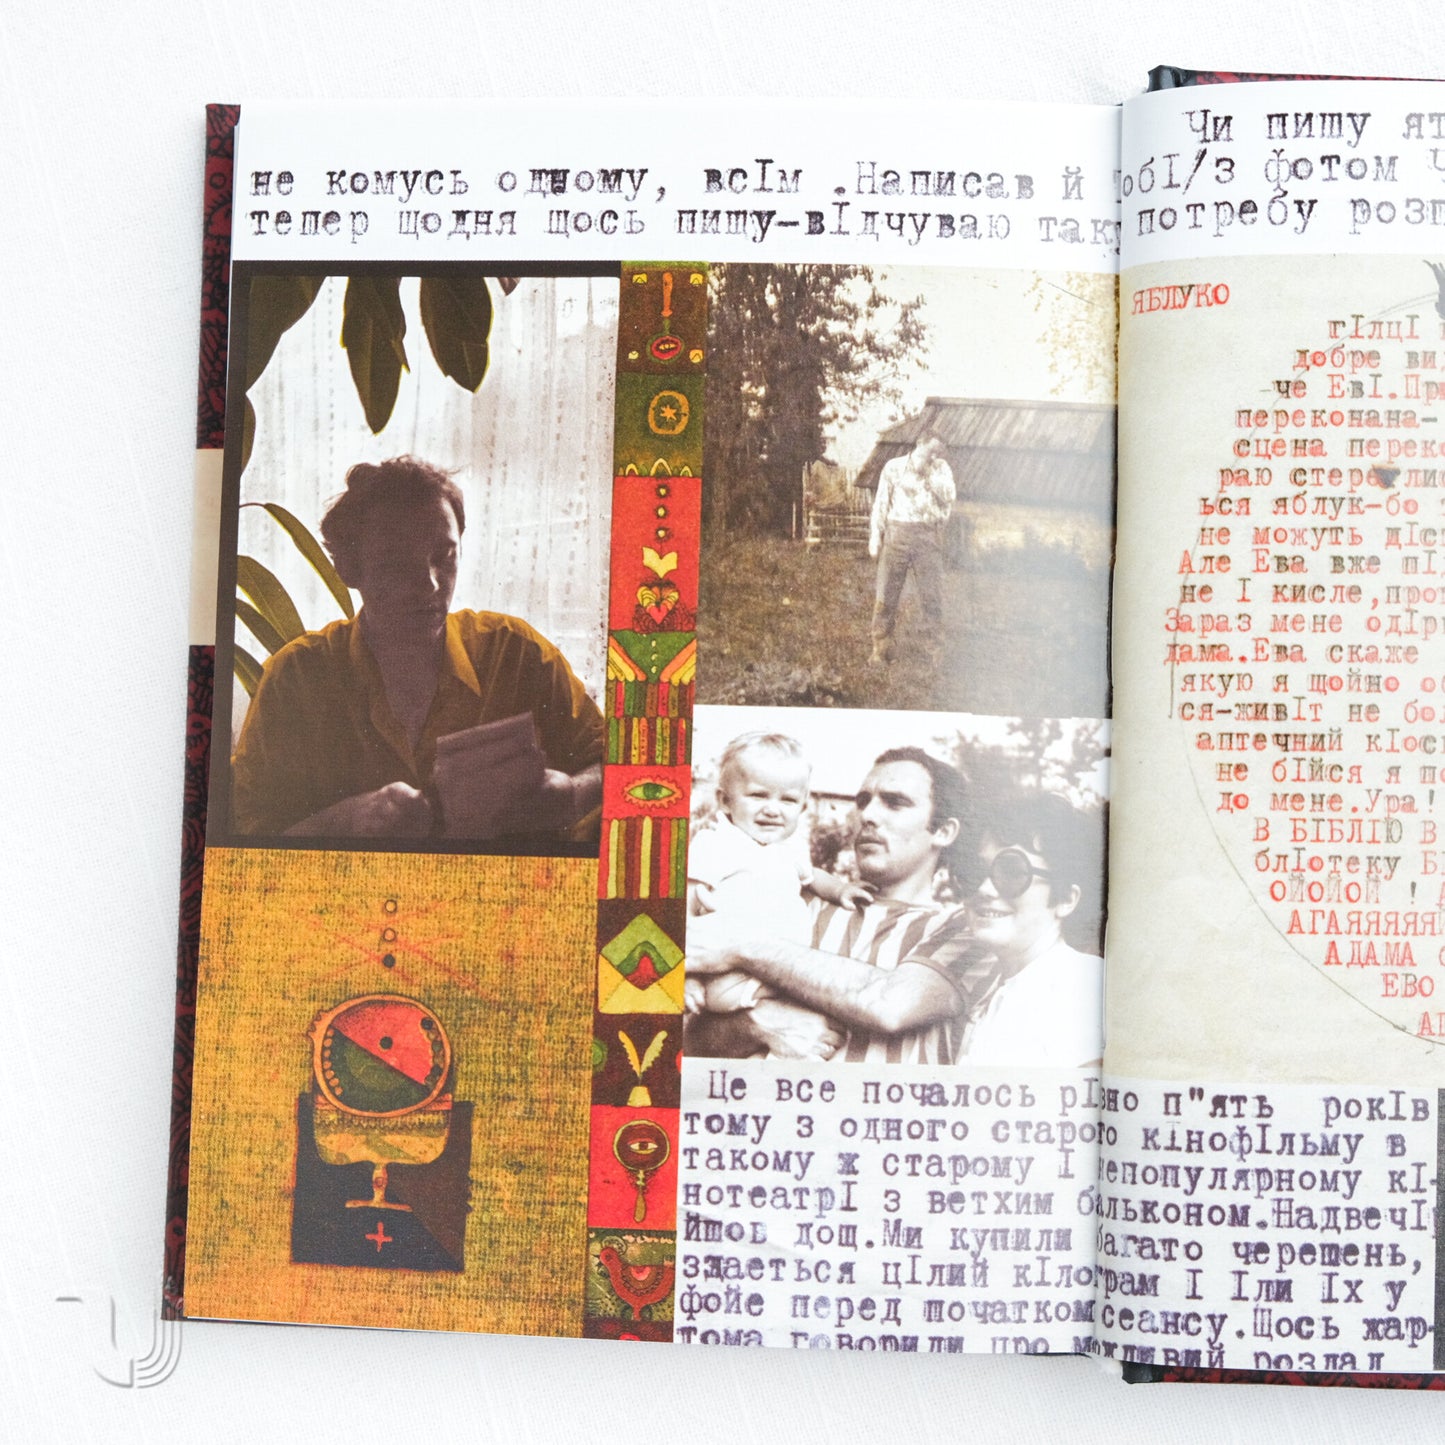 Чи пишу ят
не комусь одному, всІм .Написав й тобІ/з фотом Ч
тепер щодня щось пишу-вІдчуваю таку потребу розп
ЯБЛУКО
гІлцІ
добре ви
че ЕвІ.Пр
переконана-
сцена перек
раю стере лис
ься яблук-бо
не можуть дІс
Але Ева вже пІд
не І кисле,про
Зараз мене одІр
дама.Ева скаже
якую я щойно об
ся-живІт не бол
аптечний кІос
не бІйся я по
до мене.Ура!
В БІБЛІЮ В
блІотеку Б
ОЙОЙОЙ !
АГАЯЯЯЯЯ
АДАМА
ЕВО
Це все почалось рІвно п"ять рокІв
тому з одного старого кІнофІльму в
такому ж старому І непопулярному кІ-
нотеатрІ з ветхим бальконом.НадвечІ
йшов дощ.Ми купили багато черешень,
здаеться цІлий кІлограм І Іли Іх у
фойе перед початком сеансу.Щось жар-
тома говорили про можливий розлад